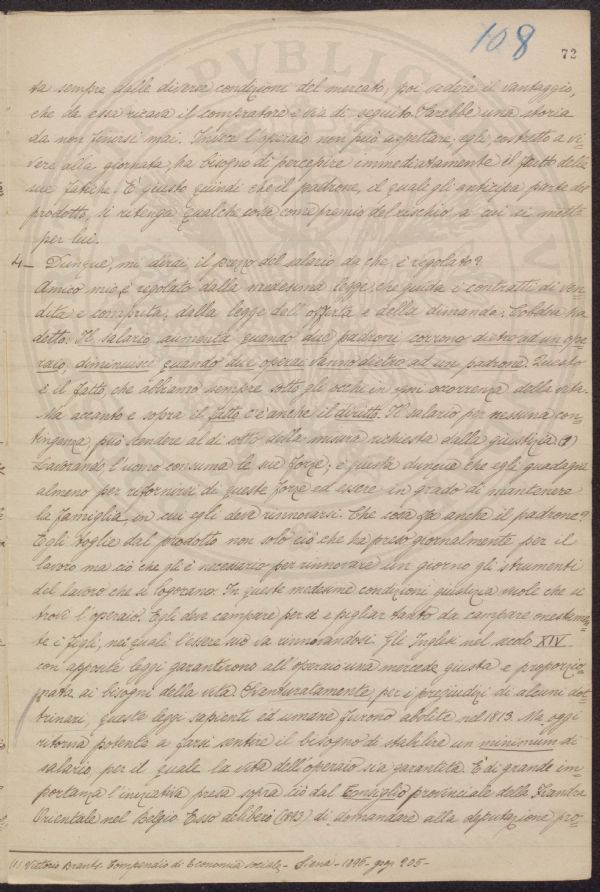 108
72
ta sempre dalle diverse condizioni del mercato, poi vedere il vantaggio,
che da essa ricava il compratore e via di seguito. Sarebbe una storia
da non finirsi mai. Invece l'operaio non può aspettare, egli costretto a vi-
vere alla giornata, ha bisogno di percepire immediatamente il frutto delle
sue fatiche. È giusto quindi che il padrone, il quale gli anticipa parte del
prodotto, si ritenga qualche cosa come premio del rischio, a cui si mette
per lui.
4 – Dunque, mi dirai, il prezzo del salario da che è regolato?
Amico mio, è regolato dalla medesima legge, che guida i contratti di ven-
dita e comprita, dalla legge dell'offerta e della dimanda. Cobden ha
detto: Il salario aumenta quando due padroni corrono dietro ad un ope-
raio, diminuisce quando due operai vanno dietro ad un padrone. Questo
è il fatto, che abbiamo sempre sotto gli occhi in ogni occorrenza della vita.
Ma accanto e sopra il fatto c'è anche il diritto. Il salario per nessuna con-
tingenza può scendere al di sotto della misura richiesta dalla giustizia (1)
Lavorando l'uomo consuma le sue forze; è giusto dunque che egli guadagni
almeno per rifornirsi di queste forze ed essere in grado di mantenere
la famiglia, in cui egli deve rinnovarsi. Che cosa fa anche il padrone?
Egli toglie dal prodotto non solo ciò che ha preso giornalmente per il
lavoro ma ciò che gli è necessario per rinnovare un giorno gli istrumenti
del lavoro che si logorano. In queste medesime condizioni giustizia vuole che si
trovi l'operaio. Egli deve campare per sè e pigliar tanto da campare onestamen-
te i figli, nei quali l'essere suo va rinnovandosi. Gli Inglesi nel secolo XIV
con apposite leggi garantirono all'operaio una mercede giusta e proporzio-
nata ai bisogni della vita. Sventuratamente per i pregiudizi di alcuni dot-
trinari, queste leggi sapienti ed umane furono abolite nel 1813. Ma oggi
ritorna potente a farsi sentire il bisogno di stabilire un minimum di
salario, per il quale la vita dell'operaio sia garantita. È di grande im-
portanza l'iniziativa presa sopra ciò dal Consiglio provinciale della Fiandra
Orientale nel Belgio. Esso deliberò (1893) di domandare alla deputazione pro-
(1) Vittorio Brants. Compendio di Economia sociale – Siena – 1896 – pag. 205 –